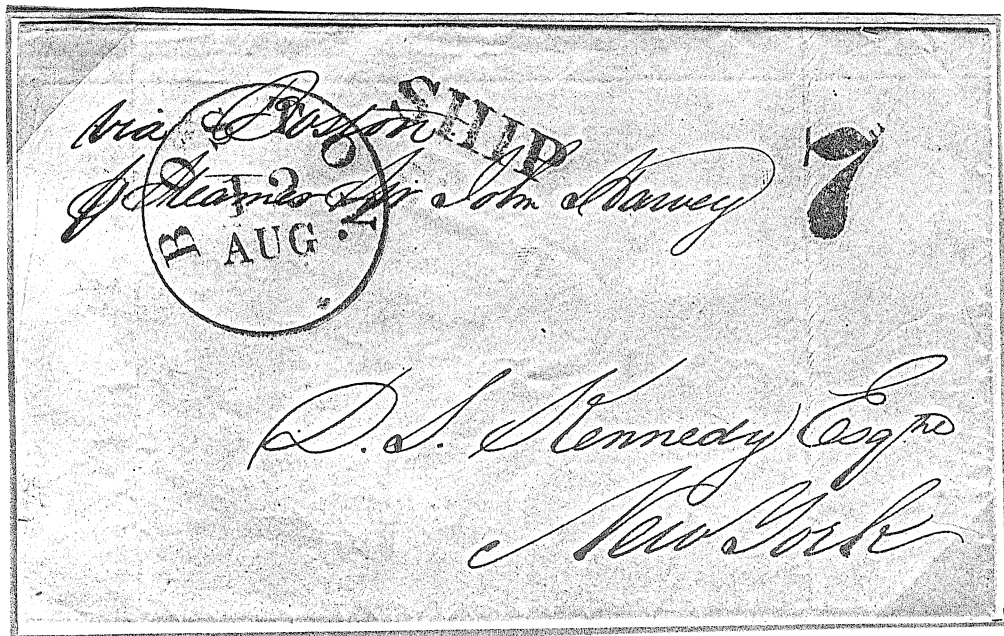 via Boston
SHIP
7
p Steamer Sir John Harvey
BOSTON
12
AUG
D. S. Kennedy Esqre
New York